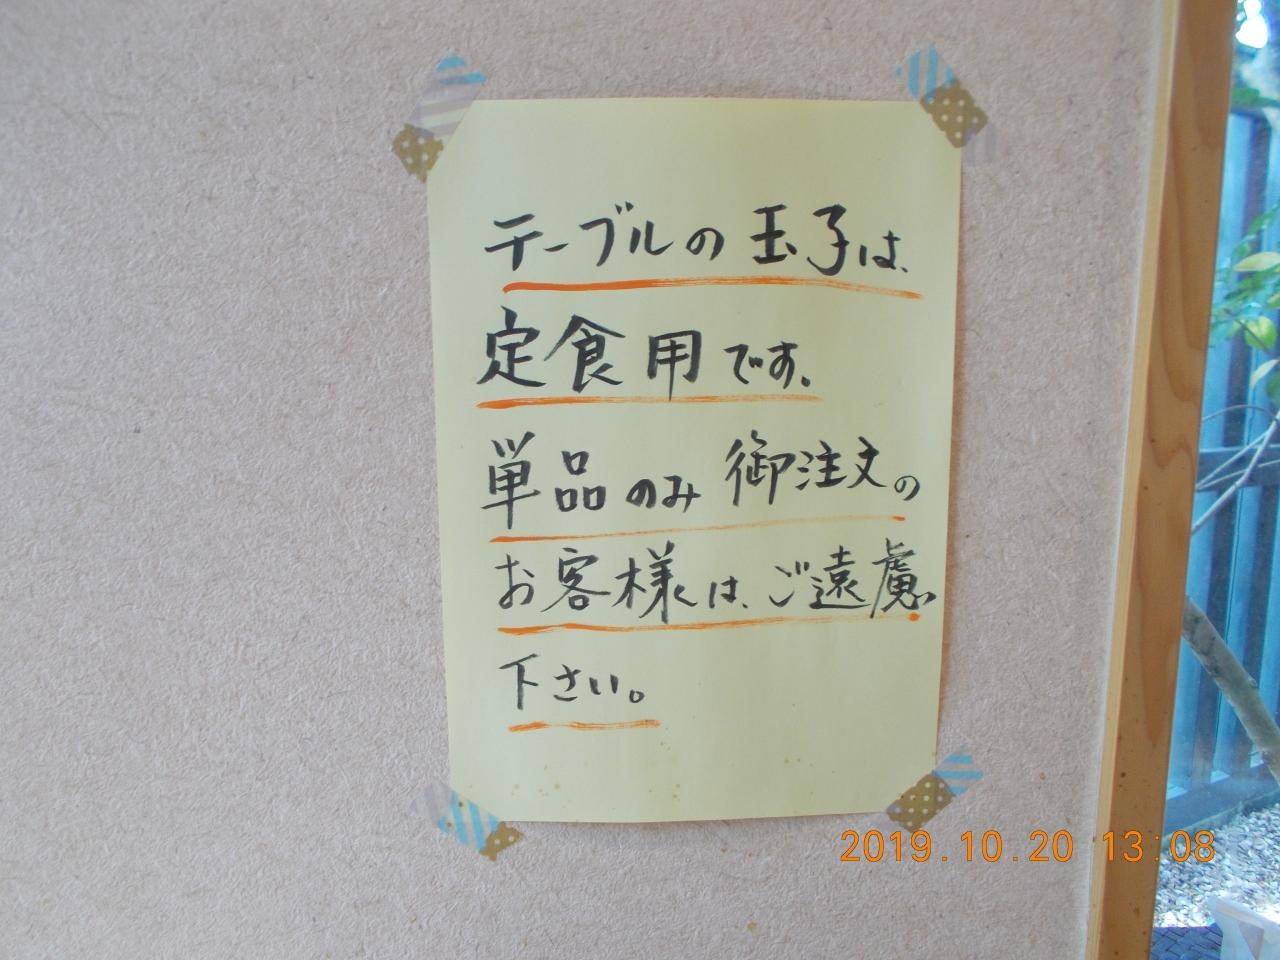 テーブルの玉子は、
定食用です。
単品のみ御注文の
お客様は、ご遠慮
下さい。
2019.10.20 13:08